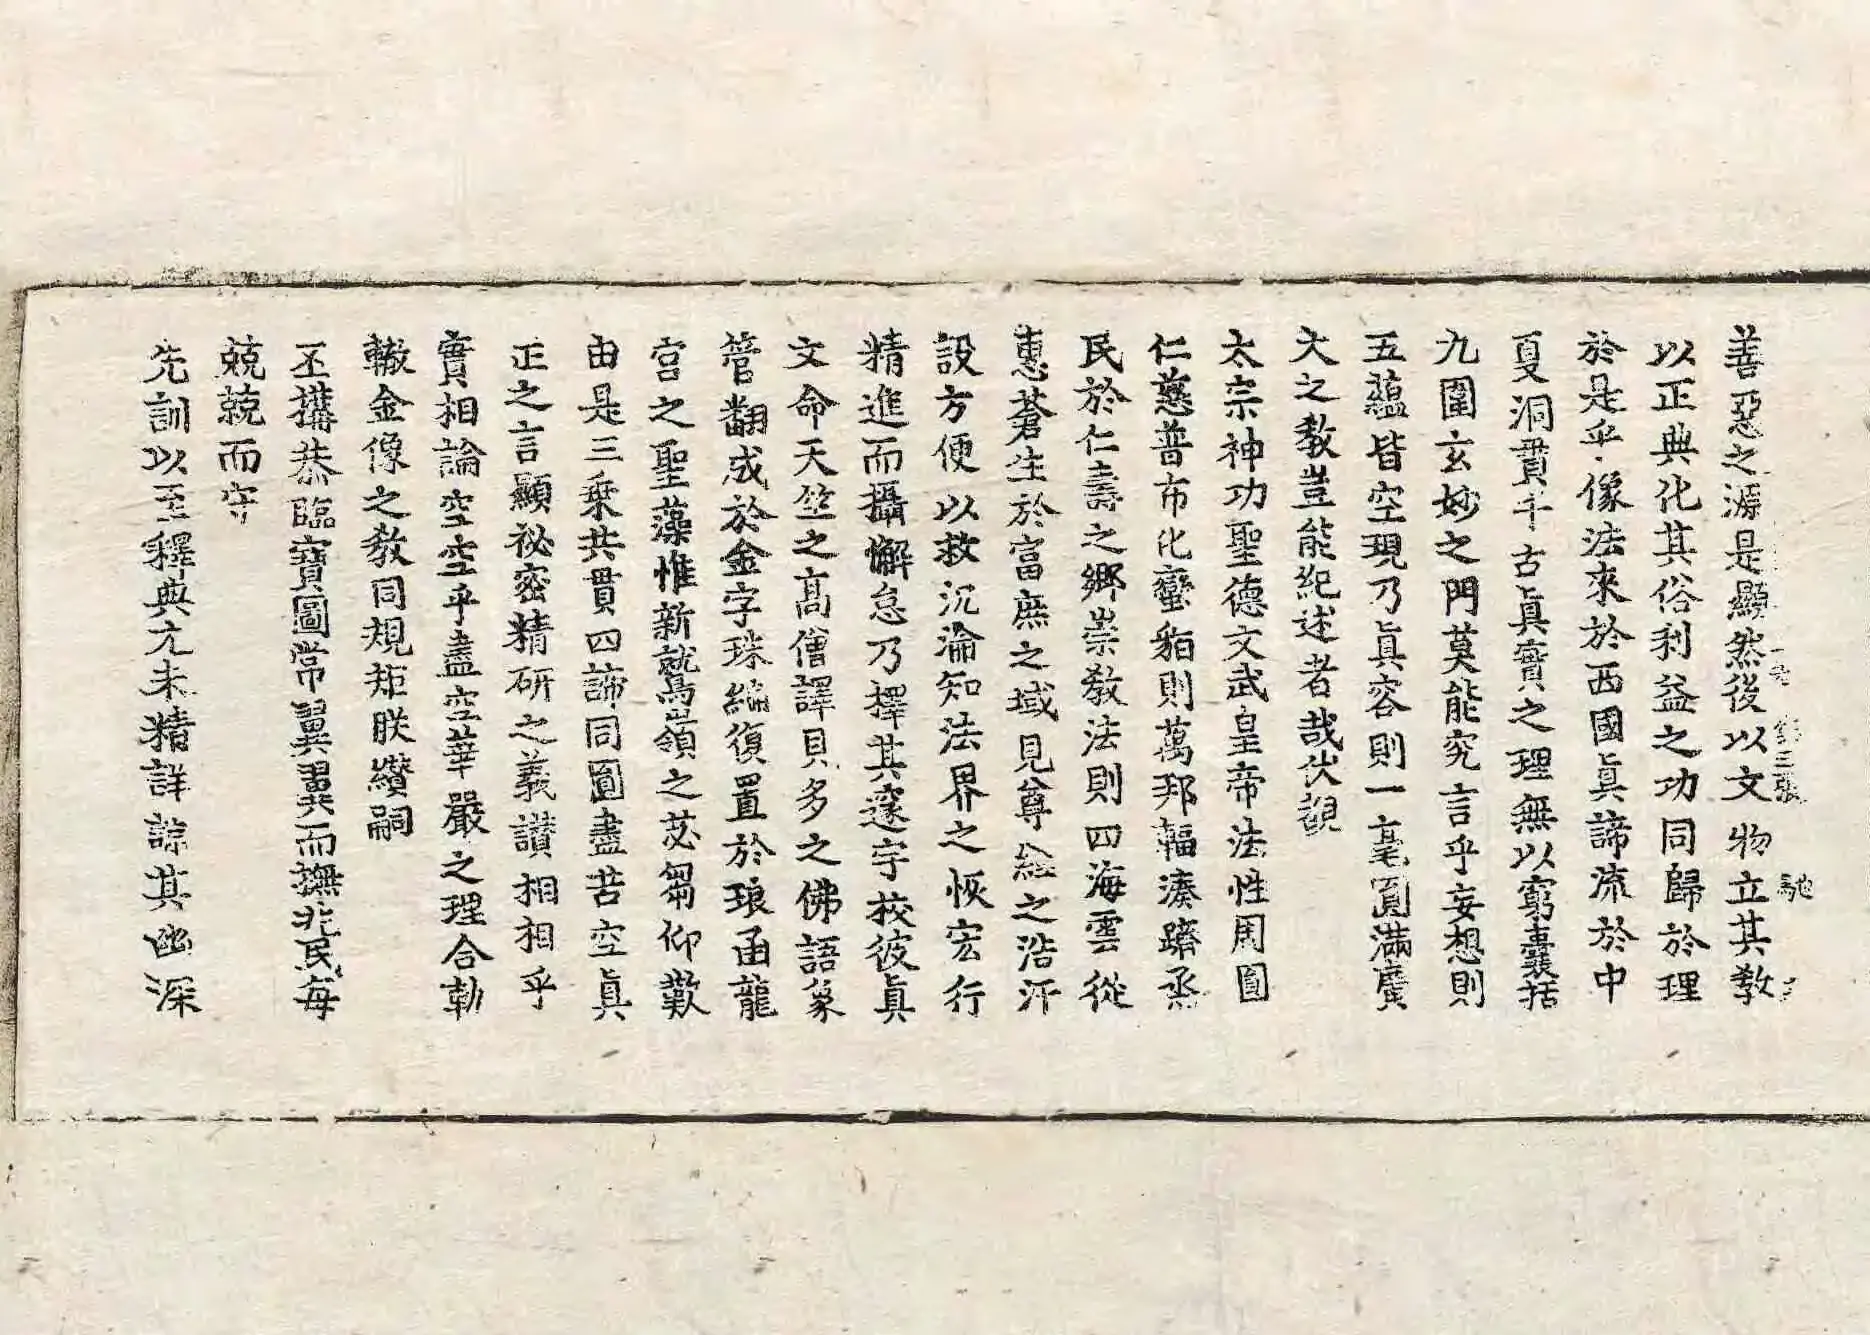 善惡之源是顯然後以文物立其教
以正典化其俗利益之功同歸於理
於是乎像法來於西國眞諦流於中
夏洞貫千古眞實之理無以窮囊括
九圍玄妙之門莫能究言乎妄想則
五蘊皆空現乃眞容則一毫圓滿廣
大之教豈能紀述者哉伏覩
太宗神功聖德文武皇帝法性周圓
仁慈普布化蠻貊則萬邦輻湊躋烝
民於仁壽之鄉崇教法則四海雲從
惠蒼生於富庶之域見尊經之浩汗
設方便以救沉淪知法界之恢宏行
精進而攝懈怠乃擇其邃宇挍彼眞
文命天竺之高僧譯貝多之佛語象
管翻成於金字珠編復置於琅函龍
宮之聖藻惟新鷲嶺之苾蒭仰歎
由是三乘共貫四諦同圓盡苦空眞
正之言顯祕密精研之義讚相相乎
實相論空空乎盡空華嚴之理合勒
轍金像之教同規矩朕纘嗣
丕搆恭臨寶圖常翼翼而撫兆民每
兢兢而守
先訓以至釋典尤未精詳諒其幽深
三張 馳